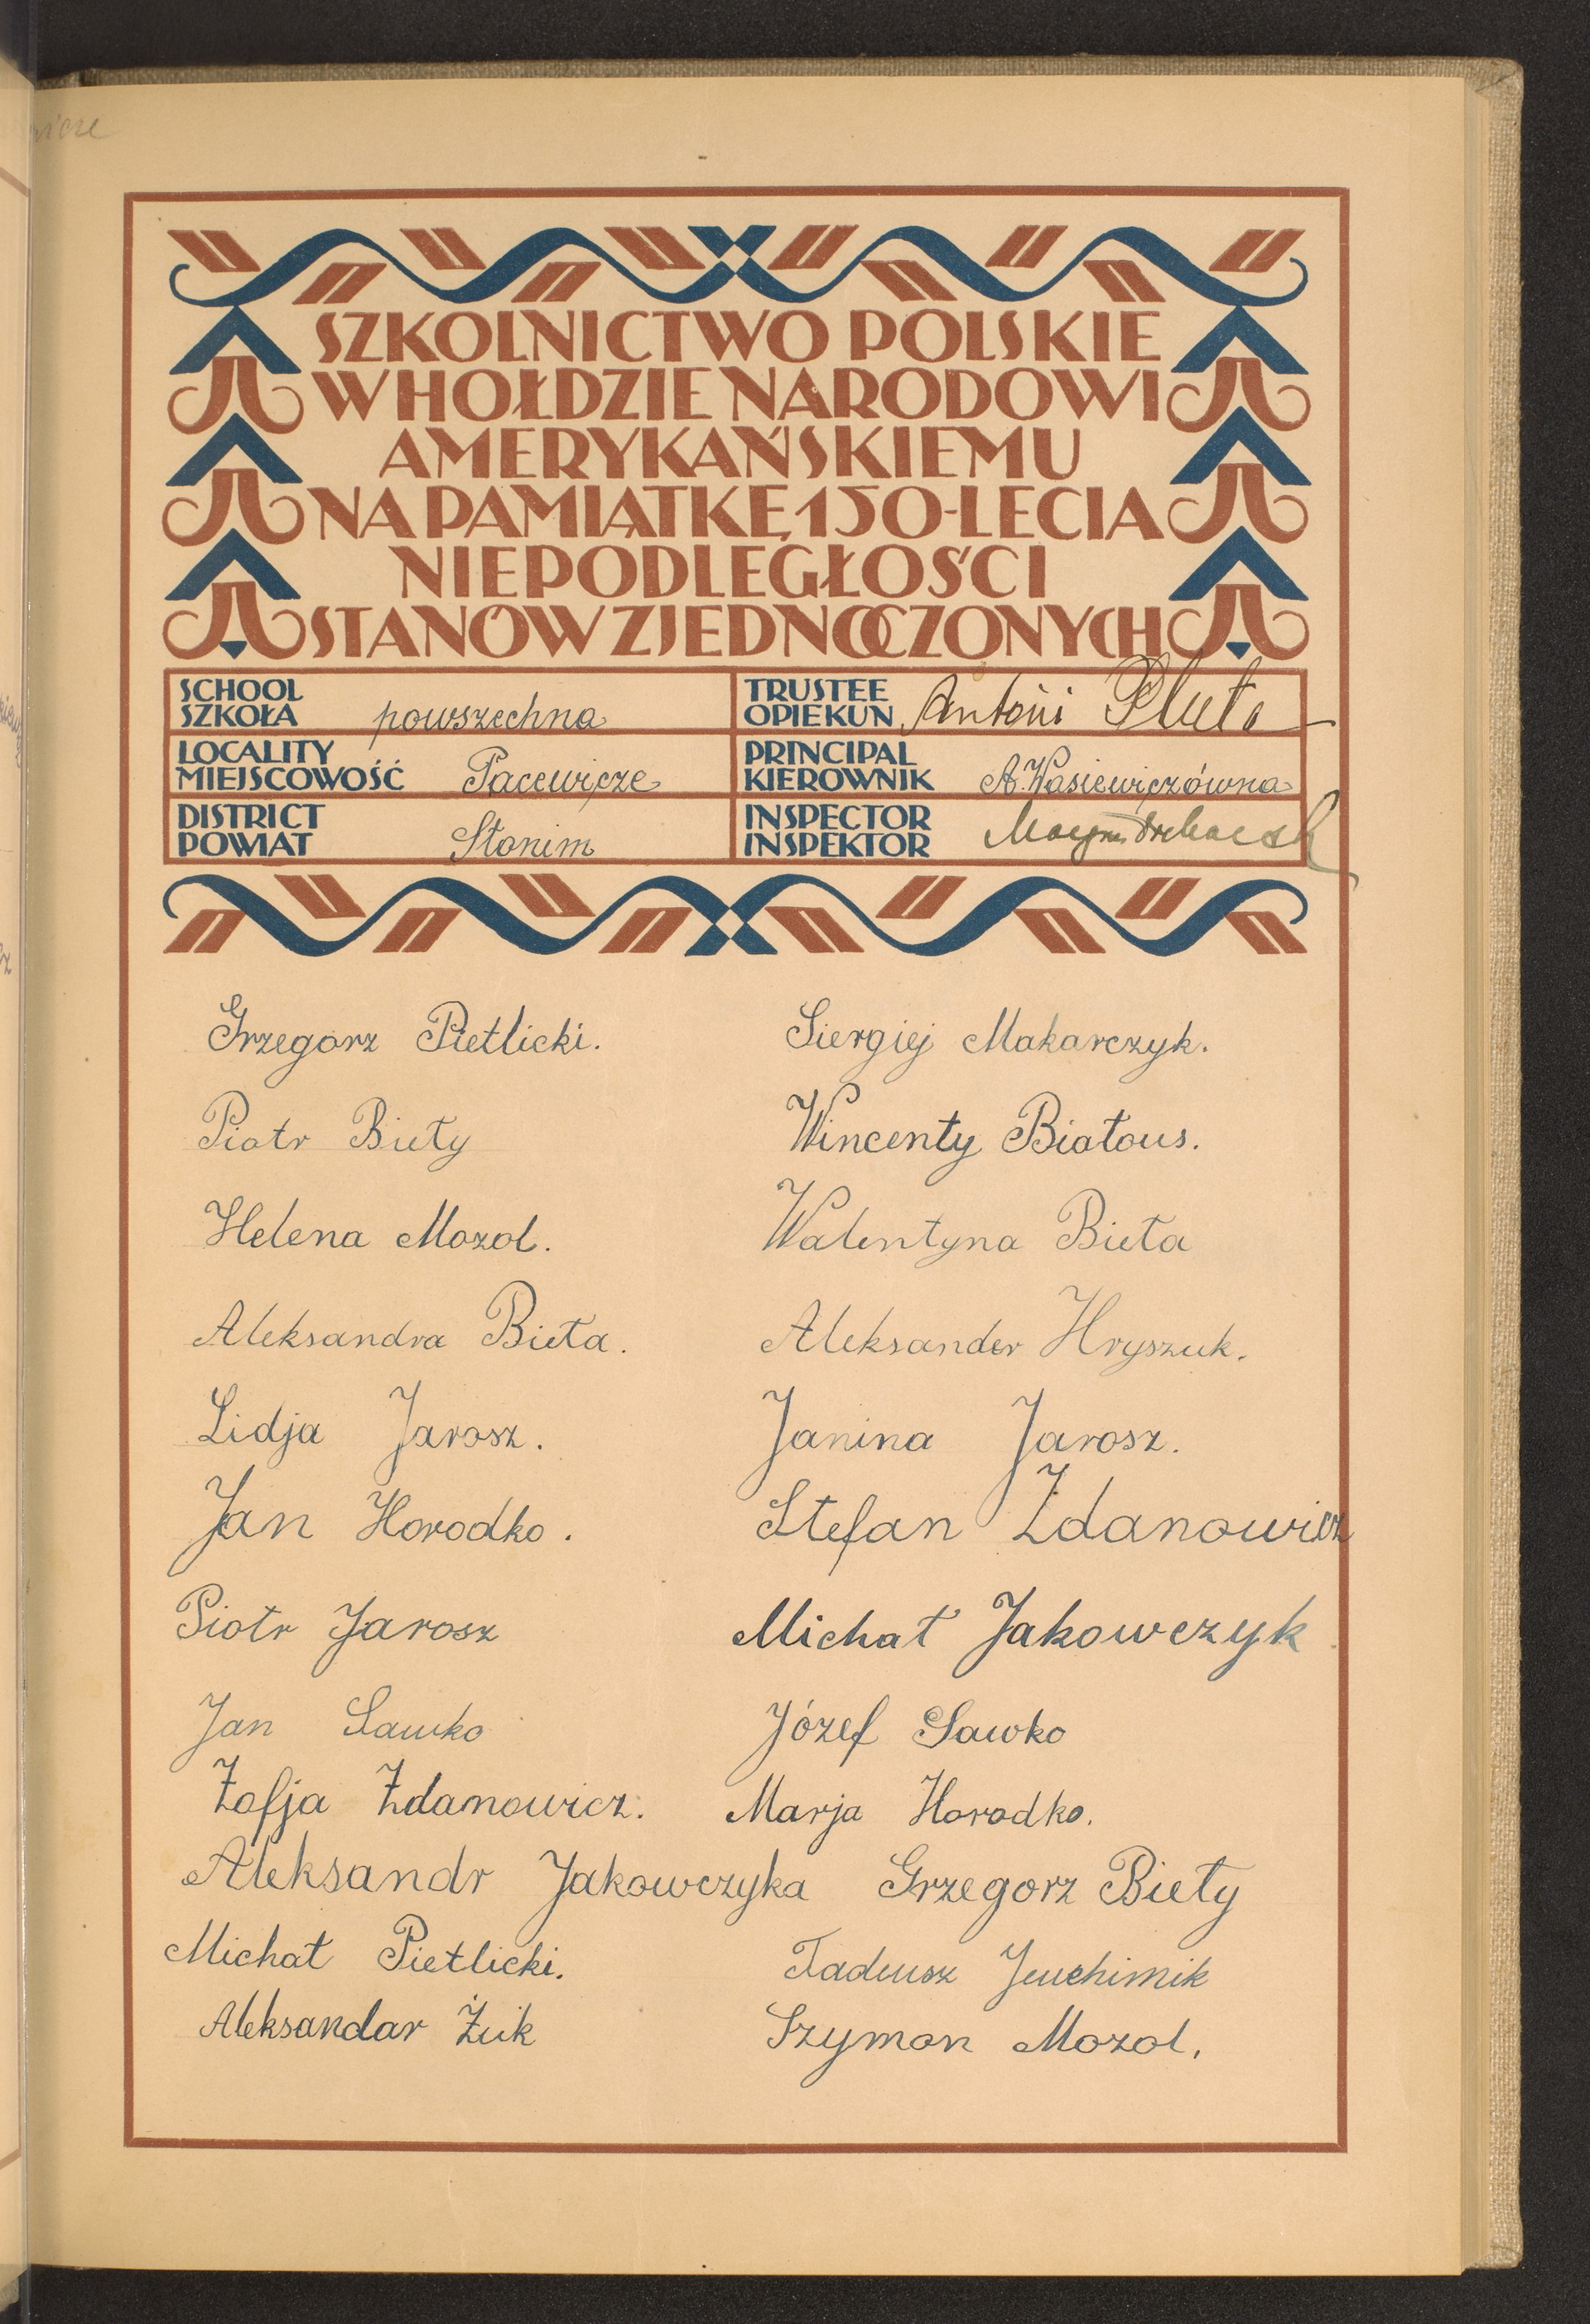 wicze
SZKOLNICTWO POLSKIE
W HOŁDZIE NARODOWI
AMERYKAŃSKIEMU
NA PAMIĄTKĘ 150-LECIA
NIEPODLEGŁOŚCI
STANÓW ZJEDNOCZONYCH
SCHOOL
SZKOŁA powszechna
TRUSTEE
OPIEKUN Antoni Pluta
LOCALITY
MIEJSCOWOŚĆ Pacewicze
PRINCIPAL
KIEROWNIK A. Wasiewiczówna
DISTRICT
POWIAT Słonim
INSPECTOR
INSPEKTOR
Grzegorz Pietlicki. Siergiej Makarczyk.
Piotr Biety Wincenty Białous.
Helena Mozol. Walentyna Bieta
Aleksandra Bieta. Aleksander Hryszuk.
Lidja Jarosz. Janina Jarosz.
Jan Horodko. Stefan Żdanowicz
Piotr Jarosz Michał Jakowczyk
Jan Sawko Józef Sawko
Zofja Żdanowicz. Marja Horodko.
Aleksandr Jakowczyka Grzegorz Biety
Michał Pietlicki. Tadeusz Jeuchimik
Aleksandar Żuk Szymon Mozol.